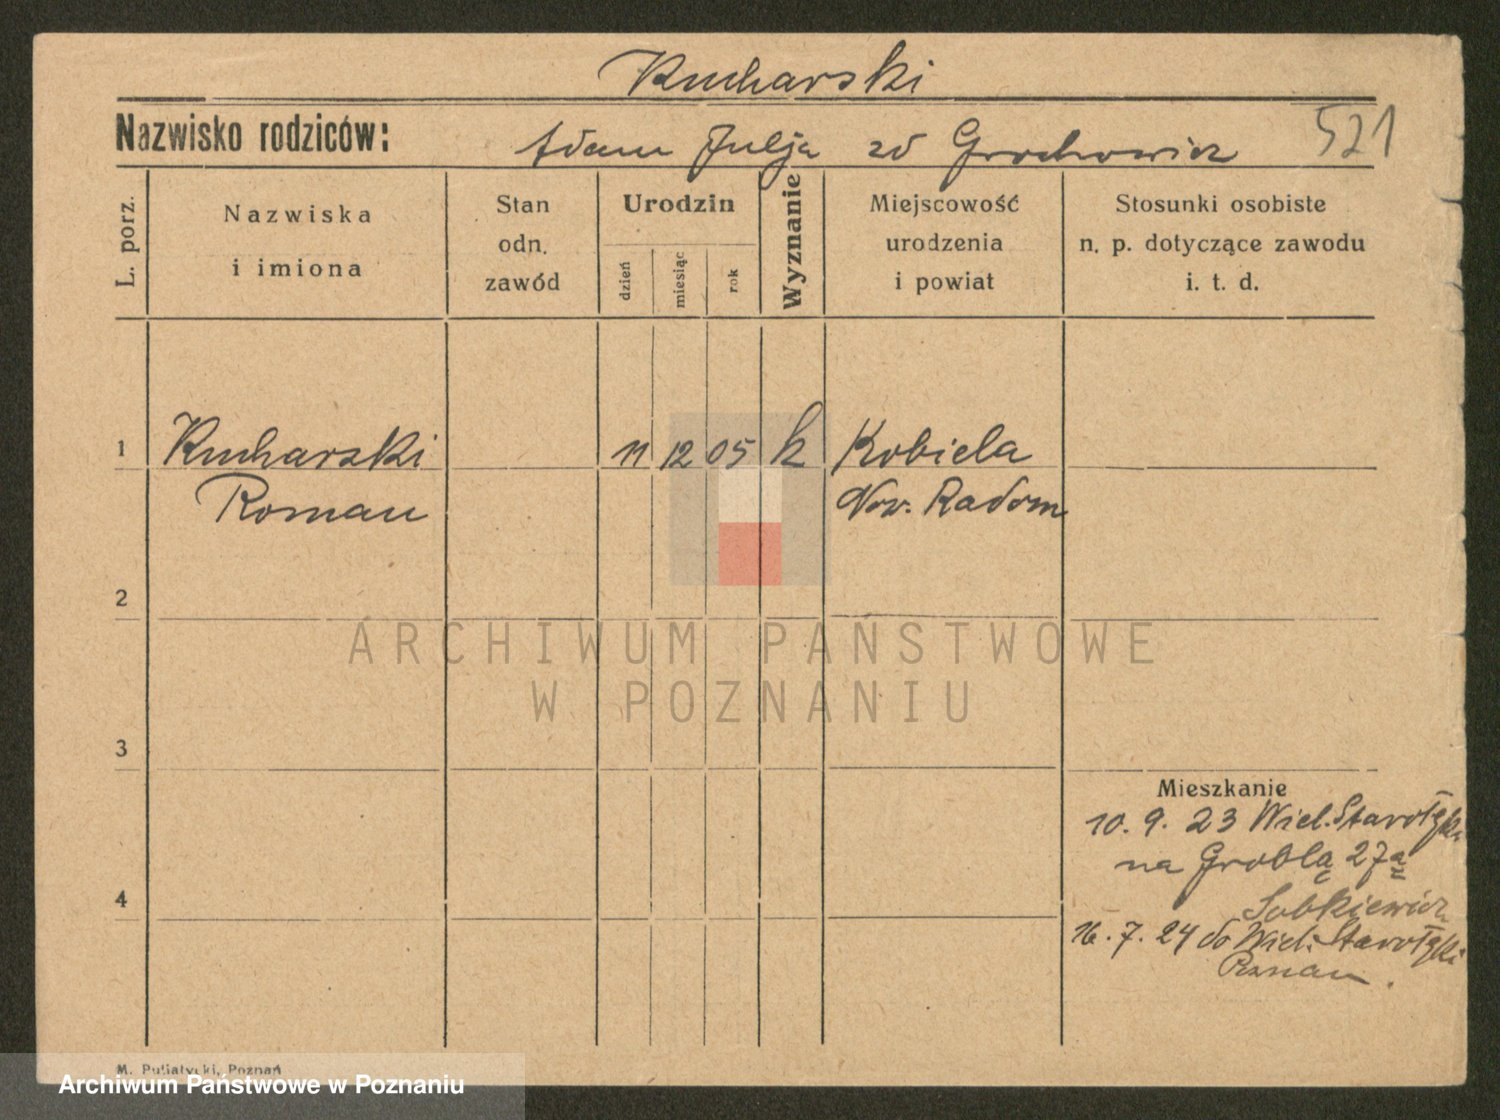 Kucharski
Nazwisko rodziców: Adam Julja zd Grochowicz 521
L. porz.
Nazwiska
i imiona
Stan
odn.
zawód
Urodzin
dzień
miesiąc
rok
Wyznanie
Miejscowość
urodzenia
i powiat
Stosunki osobiste
n. p. dotyczące zawodu
i. t. d.
1 Kucharski 11 12 05 k Kobiela
Roman Now. Radom
2
ARCHIWUM PAŃSTWOWE
W POZNANIU
3
Mieszkanie
10. 9. 23 Wiel. Starołęka
na Groblą 27a
4
Sobkiewicz
16. 7. 24 do Wiel. Starołęki
Poznań.
M. Putiatycki, Poznań
Archiwum Państwowe w Poznaniu